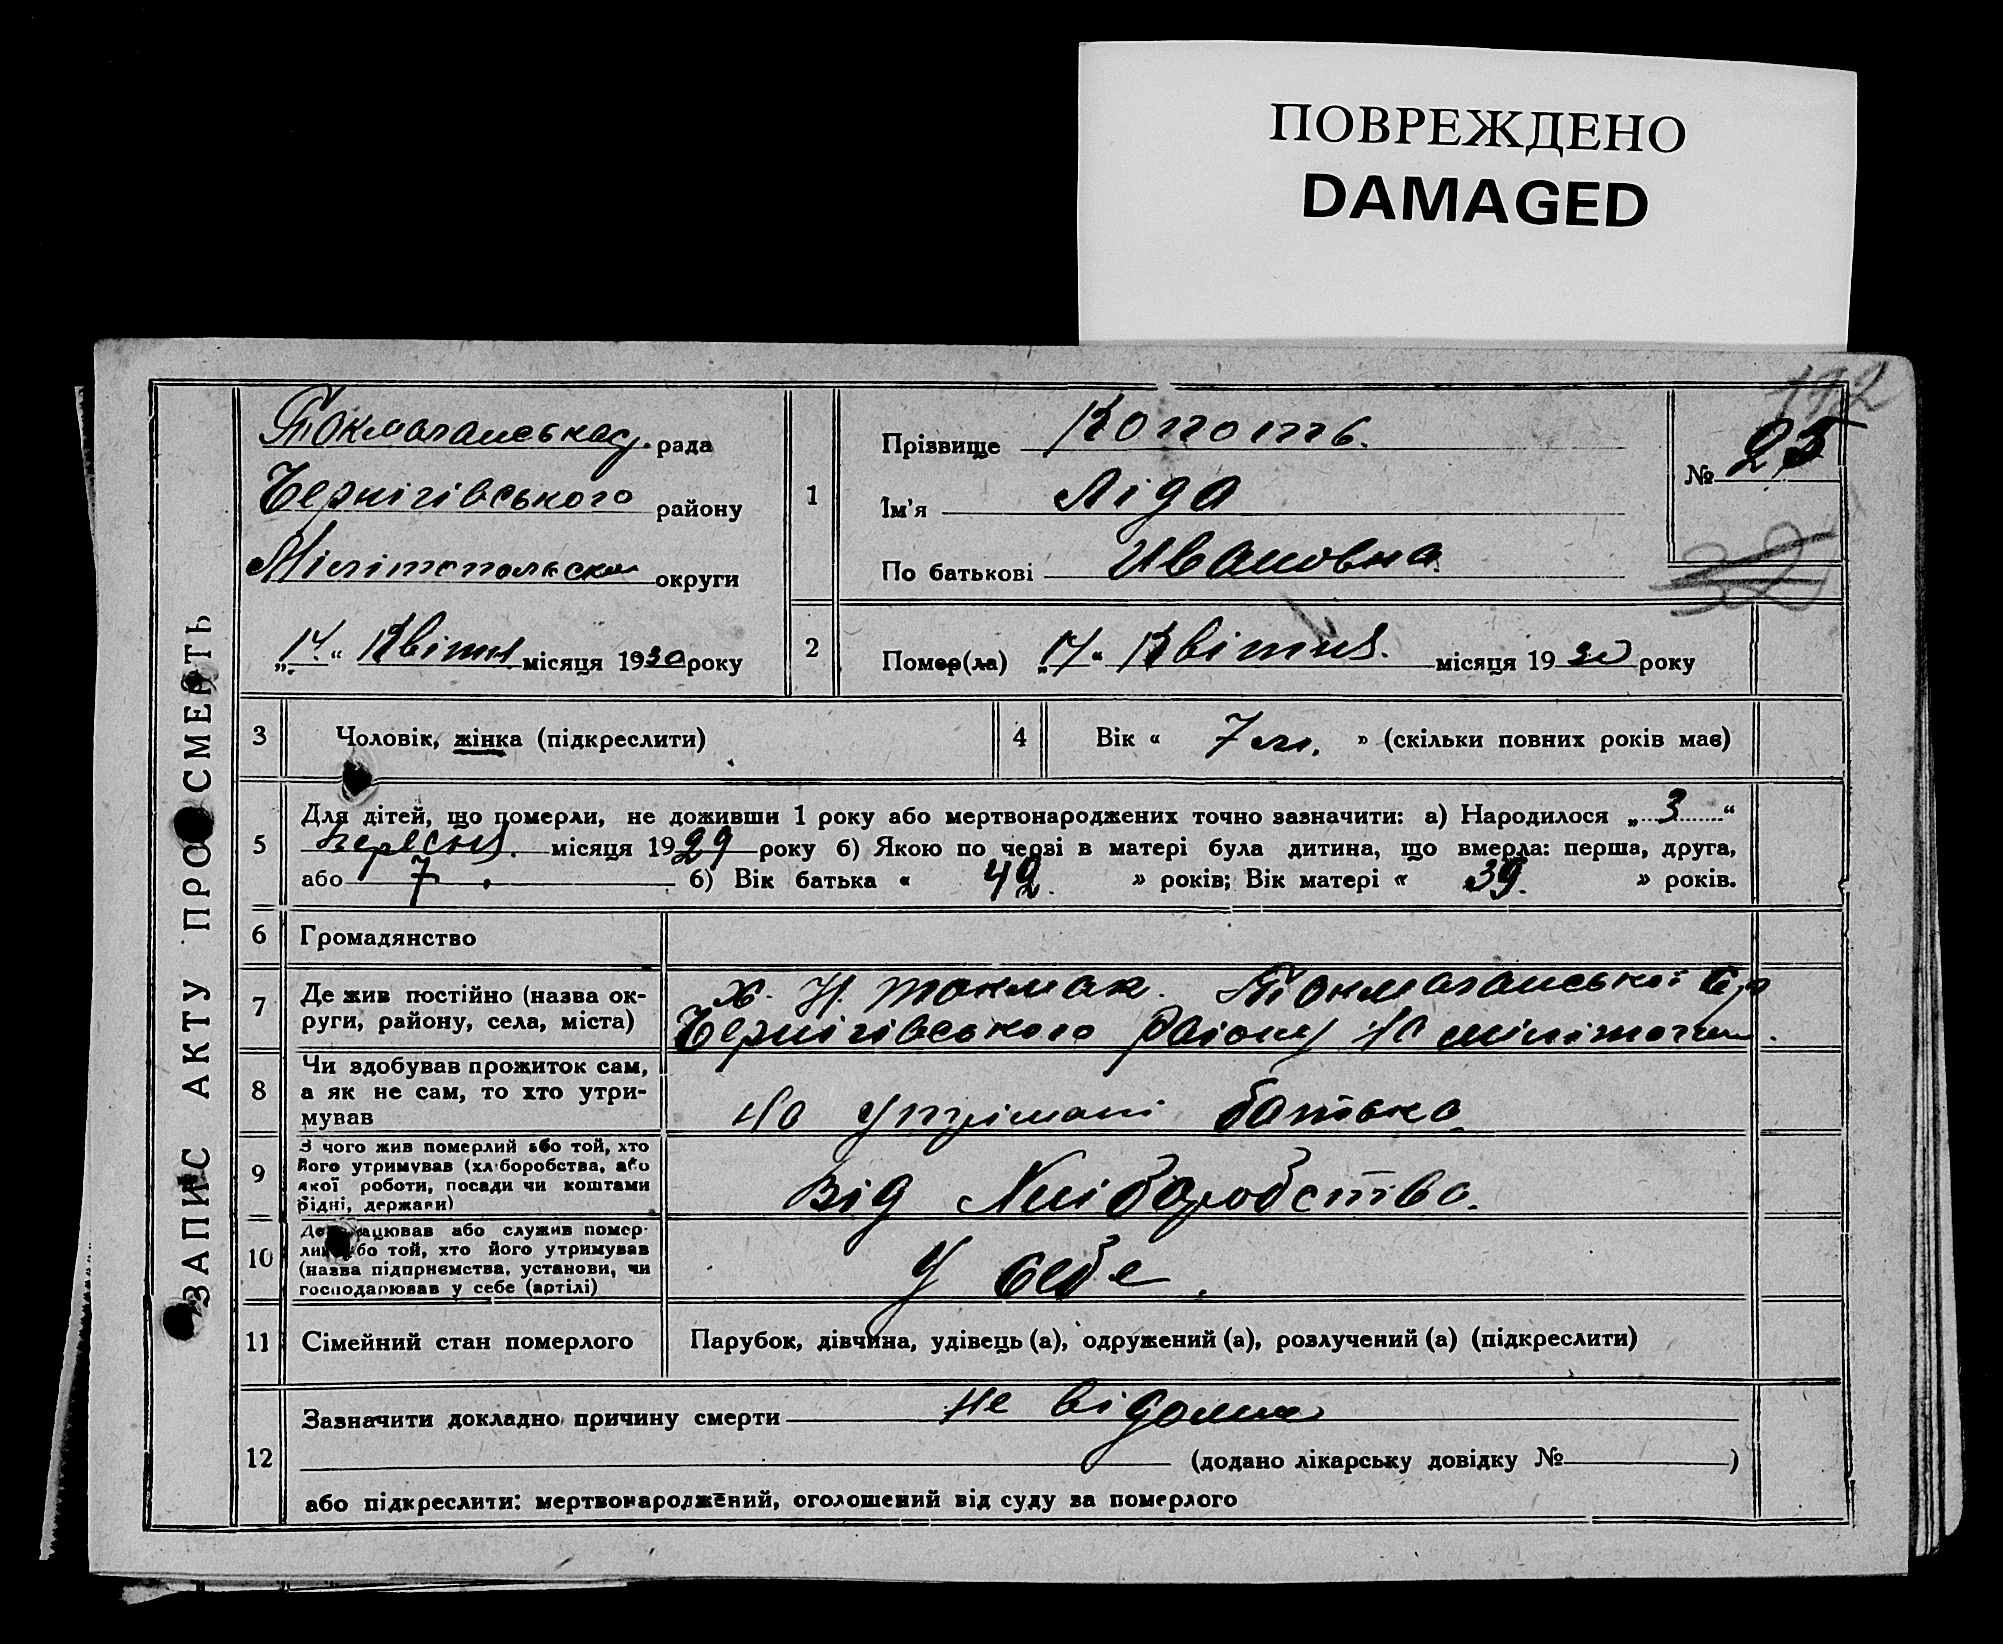 ПОВРЕЖДЕНО
DAMAGED
192
ЗАПИС АКТУ ПРО СМЕРТЬ
Токмачанська с. рада
Чернігівського району
Мілітопольскої округи
„14“ Квітня місяця 1930 року
1
Прізвище Копоть.
Ім'я Ліда
По батькові Ивановна
№ 25
32
2
Помер(ла) „17“ Квітня. місяця 1930 року
3 Чоловік, жінка (підкреслити)
4 Вік « 7 м. » (скільки повних років має)
5
Для дітей, що померли, не доживши 1 року або мертвонароджених точно зазначити: а) Народилося „3“
Вересня. місяця 1929 року б) Якою по черзі в матері була дитина, що вмерла: перша, друга,
або 7. б) Вік батька « 42. » років; Вік матері « 39. » років.
6 Громадянство
7 Де жив постійно (назва ок-
руги, району, села, міста)
х. Н. Токмак. Токмачанської с/р
Чернігівського району на
8 Чи здобував прожиток сам,
а як не сам, то хто утри-
мував
на утрімані батька.
9 З чого жив померлий або той, хто
його утримував (хліборобства, або
якої роботи, посади чи коштами
рідні, держави)
Від Хліборобства.
10 Де працював або служив помер-
лий або той, хто його утримував
(назва підприємства, установи, чи
господарював у себе (артілі)
У себе.
11 Сімейний стан померлого
Парубок, дівчина, удівець (а), одружений (а), розлучений (а) (підкреслити)
12
Зазначити докладно причину смерти не відома
(додано лікарську довідку № )
або підкреслити: мертвонароджений, оголошений від суду за померлого